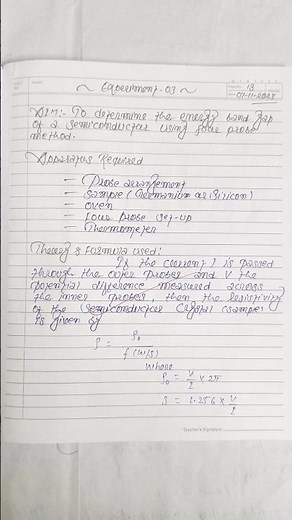 ~ Experiment-03 ~
13
07-11-2023
AIM:- To determine the energy band gap
of a semiconductor using four probe
method.
Apparatus Required
— Probe arrangement
— Sample (Germanium or Silicon)
— Oven
— Four probe set-up
— Thermometer
Theory & Formula used:
If the current I is passed
through the outer probes and V the
potential difference measured across
the inner probes, then the resistivity
of the (semiconductor crystal) sample
is given by
ρ = ρ₀ / f(W/S)
where
ρ₀ = V/I × 2π
ρ = 1.256 × V/I
Teacher's Signature